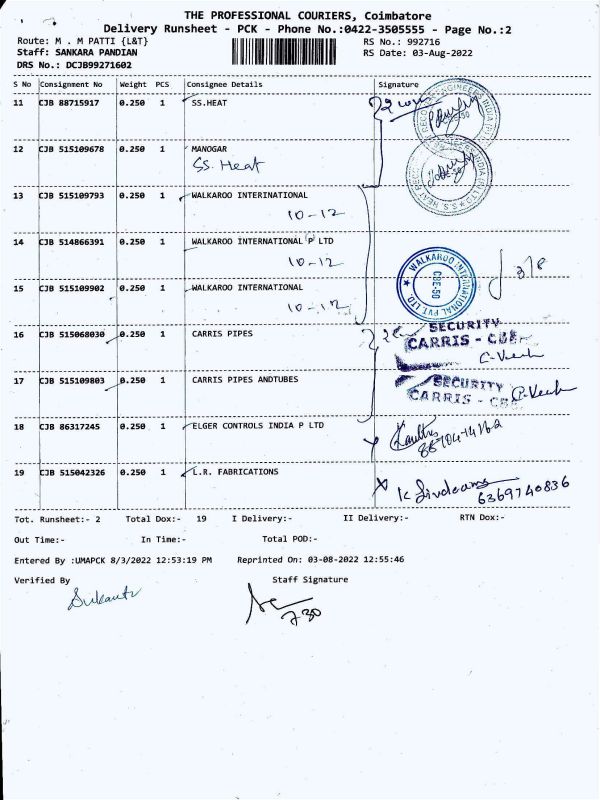 THE PROFESSIONAL COURIERS, Coimbatore
Delivery Runsheet - PCK - Phone No.:0422-3505555 - Page No.:2
Route: M . M PATTI {L&T} RS No.: 992716
Staff: SANKARA PANDIAN RS Date: 03-Aug-2022
DRS No.: DCJB99271602
S No Consignment No Weight PCS Consignee Details Signature
11 CJB 88715917 0.250 1 SS.HEAT
12 CJB 515109678 0.250 1 MANOGAR
SS. Heat
13 CJB 515109793 0.250 1 WALKAROO INTERINATIONAL
10-12
14 CJB 514866391 0.250 1 WALKAROO INTERNATIONAL P LTD
10-12
15 CJB 515109902 0.250 1 WALKAROO INTERNATIONAL
10-12
WALKAROO INTERNATIONAL PVT LTD.
CBE-50
3/8
16 CJB 515068030 0.250 1 CARRIS PIPES
SECURITY
CARRIS - CBE
17 CJB 515109803 0.250 1 CARRIS PIPES ANDTUBES
SECURITY
CARRIS - CBE
18 CJB 86317245 0.250 1 ELGER CONTROLS INDIA P LTD
19 CJB 515042326 0.250 1 L.R. FABRICATIONS
6369740836
Tot. Runsheet:- 2 Total Dox:- 19 I Delivery:- II Delivery:- RTN Dox:-
Out Time:- In Time:- Total POD:-
Entered By :UMAPCK 8/3/2022 12:53:19 PM Reprinted On: 03-08-2022 12:55:46
Verified By Staff Signature
7.30